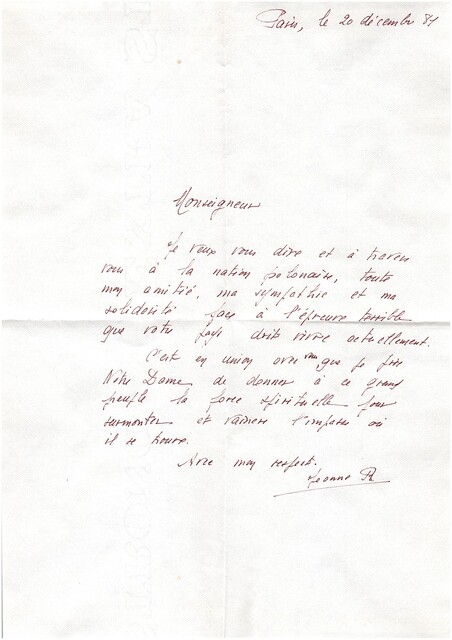 Paris, le 20 décembre 81
Monseigneur
Je veux vous dire et à travers
vous à la nation polonaise, toute
mon amitié, ma sympathie et ma
solidarité face à l'épreuve terrible
que votre pays doit vivre actuellement.
C'est en union avec vous que je prie
Notre Dame de donner à ce grand
peuple la force spirituelle pour
surmonter et vaincre l'impasse où
il se trouve.
Avec mon respect.
Jeanne